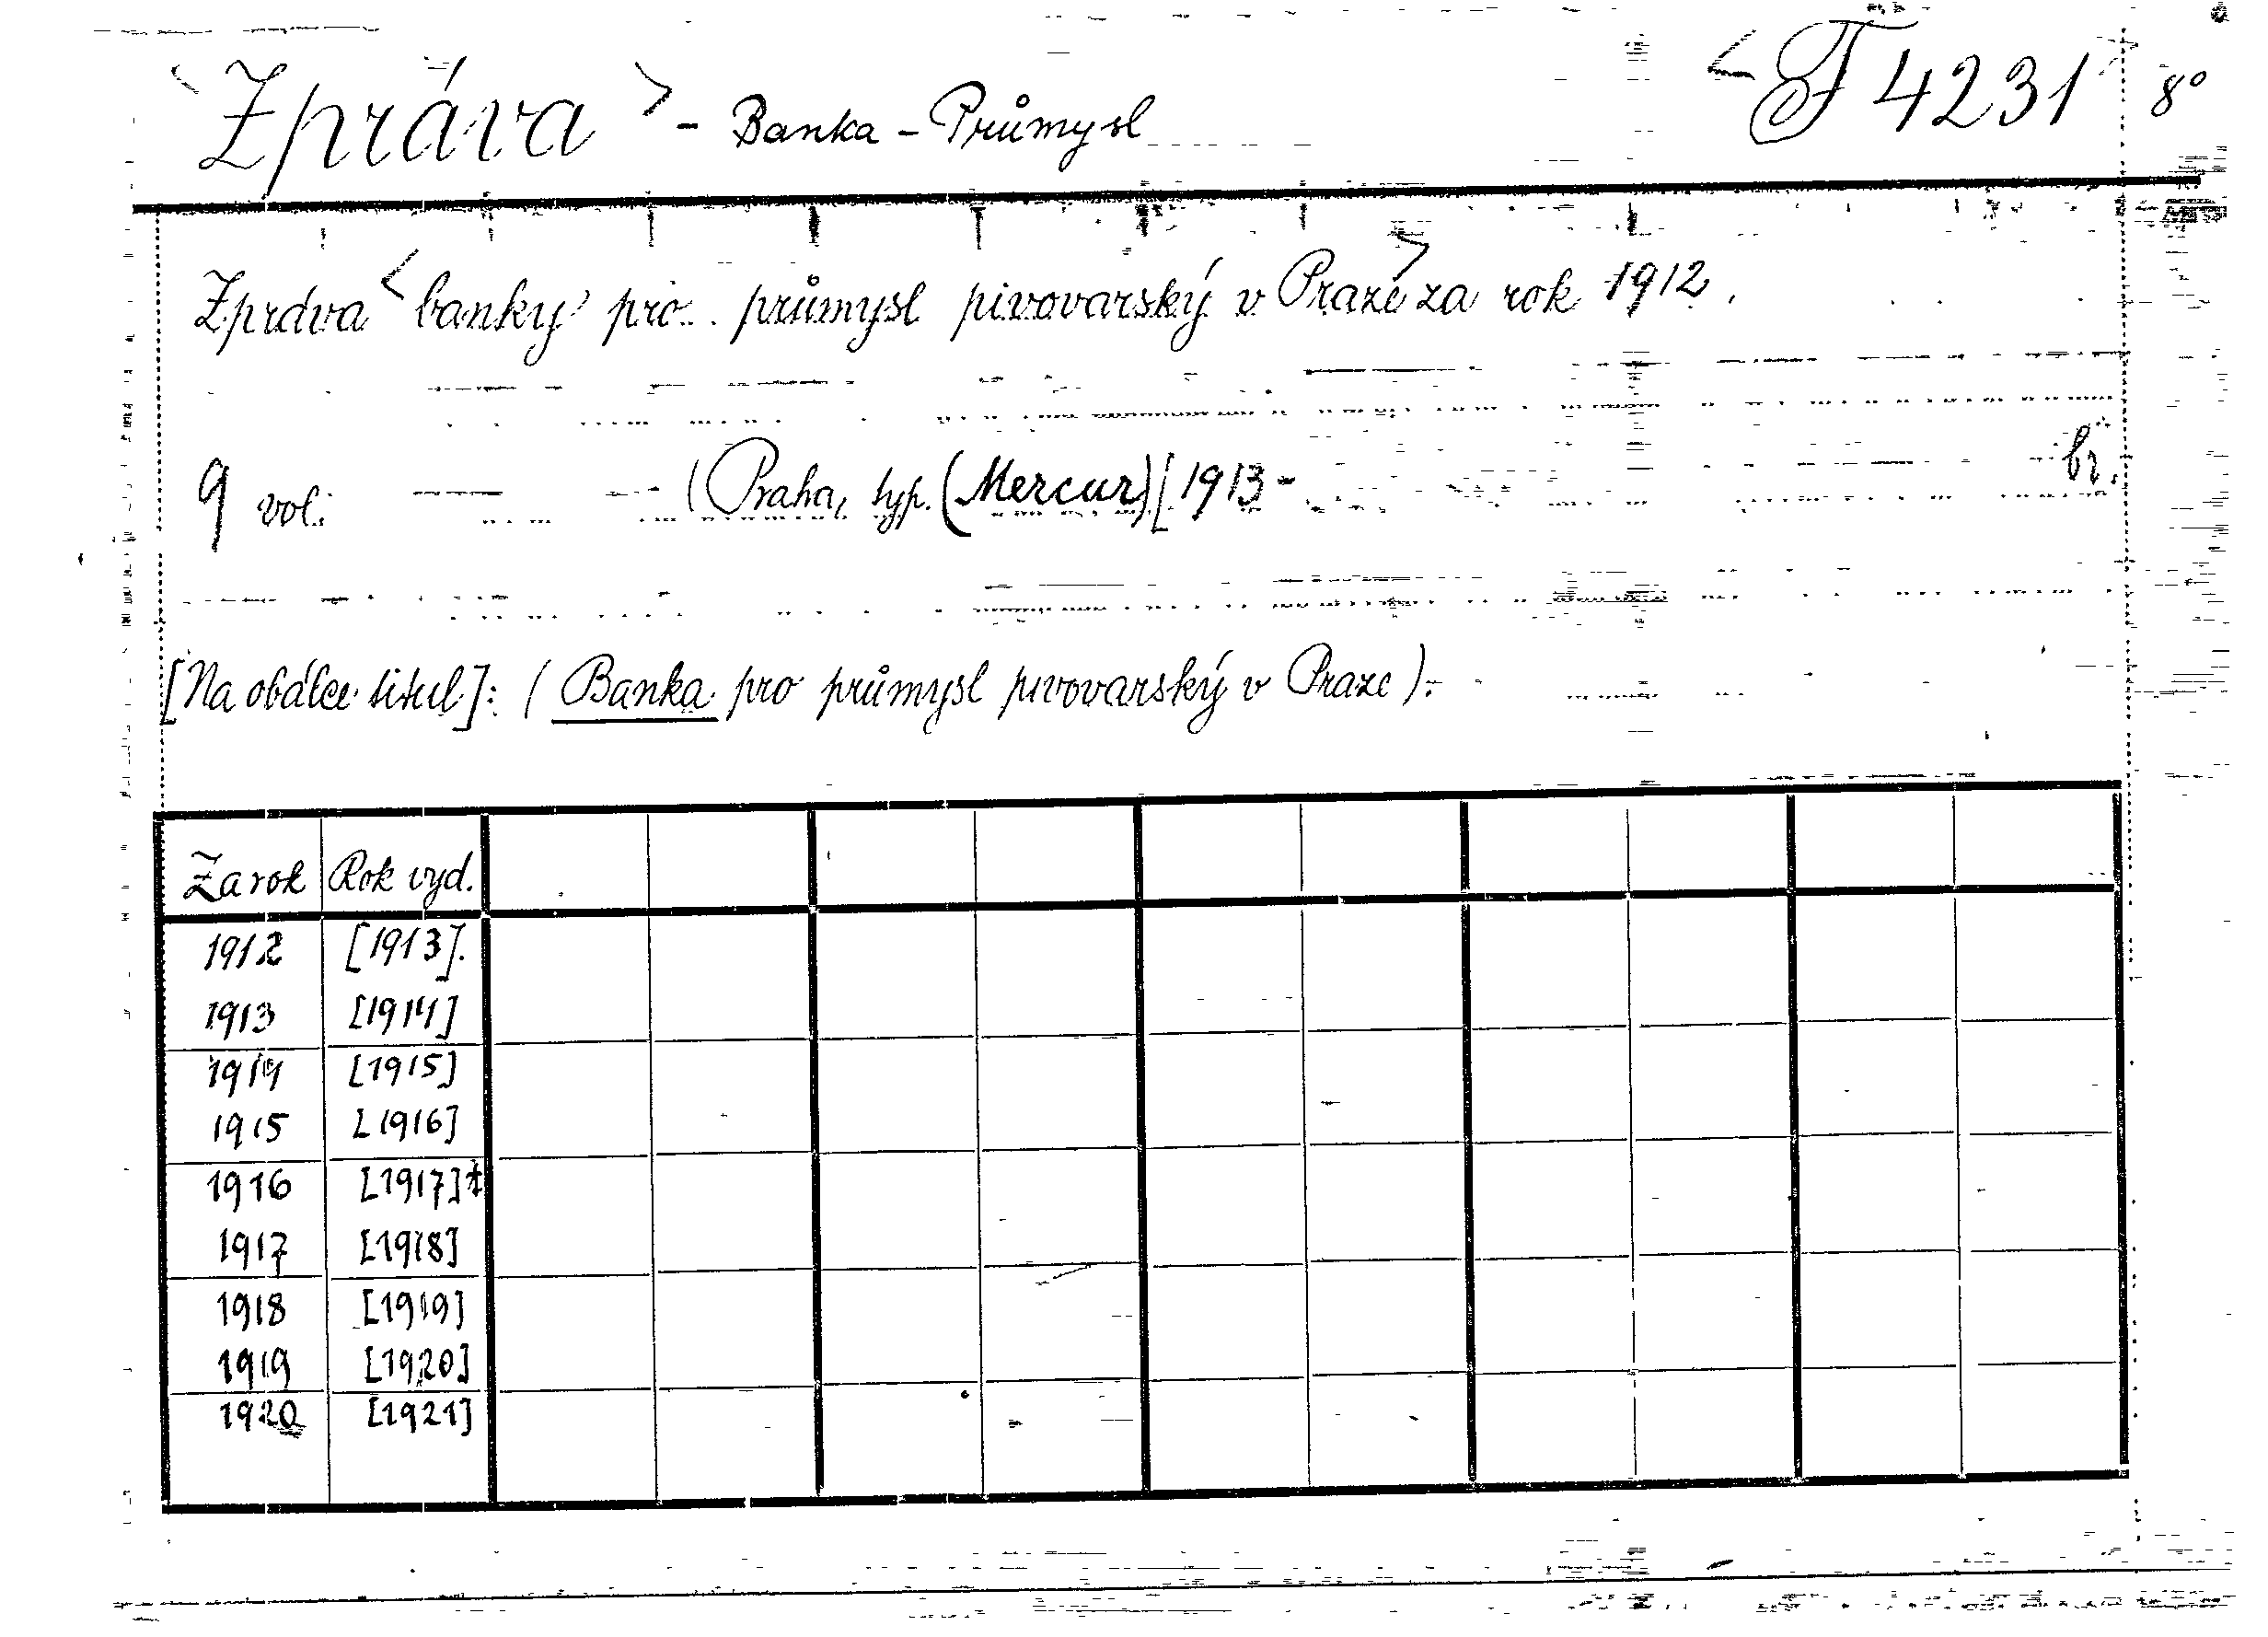 <Zpráva> - Banka - Průmysl <F 4231> 8°
Zpráva <banky pro průmysl pivovarský v Praze> za rok 1912.
9 vol. (Praha, typ. (Mercur) [1913- br.
[Na obálce titul]: (Banka pro průmysl pivovarský v Praze).
Za rok Rok vyd.
1912 [1913].
1913 [1914]
1914 [1915]
1915 [1916]
1916 [1917]*
1917 [1918]
1918 [1919]
1919 [1920]
1920 [1921]